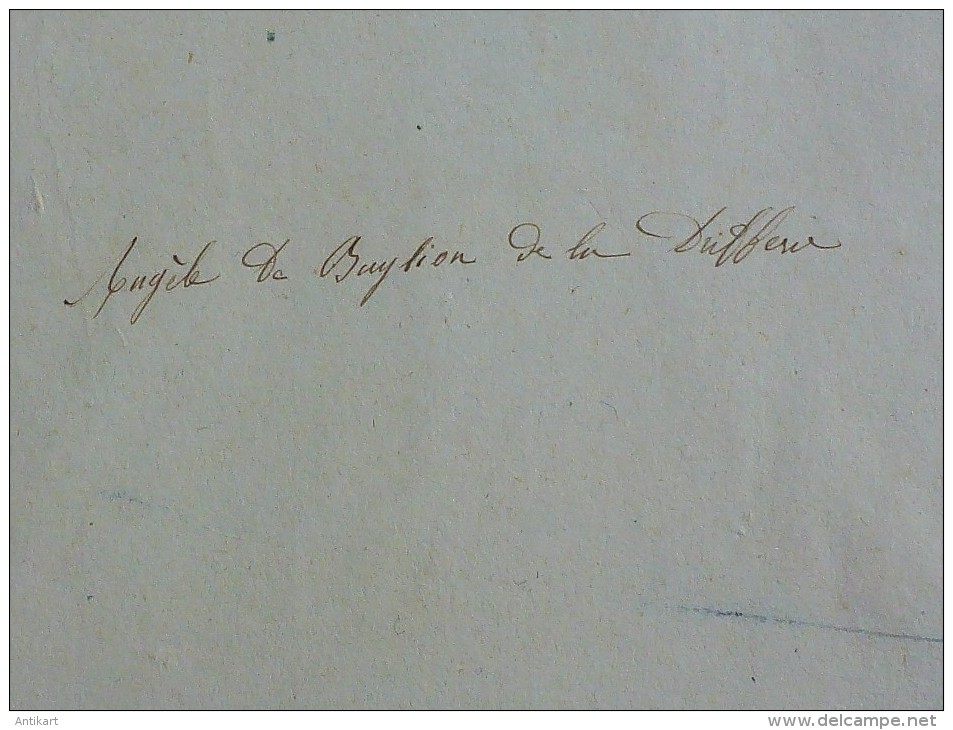 Angèle De Baglion de la Dufferie
Antikart
www.delcampe.net